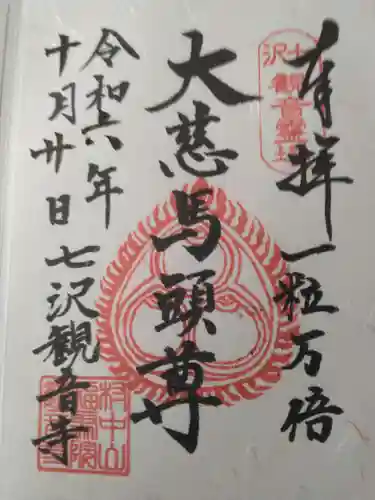 奉拝 一粒万倍
七沢観音霊場
大慈馬頭尊
令和六年
十月廿日 七沢観音寺